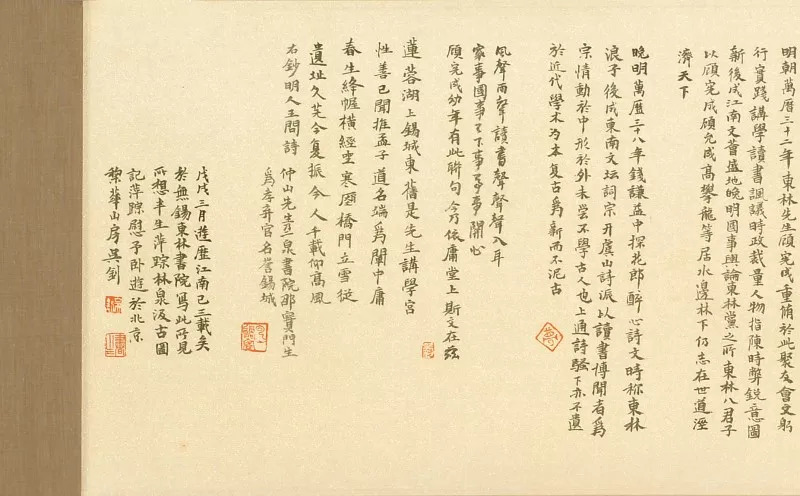 明朝萬曆三十二年東林先生顧憲成重脩於此聚友會文躬
行實踐講學讀書諷議時政裁量人物指陳時弊銳意圖
新後成江南文薈盛地晚明國事輿論東林黨之所東林八君子
以顧憲成顧允成高攀龍等居水邊林下仍志在世道涇
濟天下
晚明萬曆三十八年錢謙益中探花郎醉心詩文時称東林
浪子後成東南文坛詞宗开虞山詩派以讀書博聞者爲
宗情動於中形於外未嘗不學古人也上通詩騷下亦不遺
於近代學术为本復古爲新而不泥古
風聲雨聲讀書聲聲聲入耳
家事國事天下事事事關心
顧憲成幼年有此聯句今乃依庸堂上斯文在兹
蓮蓉湖上錫城東舊是先生講學宮
性善已聞推孟子道名端爲闡中庸
春生絳帳橫經坐寒團橋門立雪從
遺址久芜今復振令人千載仰高風
右鈔明人王問詩
仲山先生二泉書院邵寶門生
爲孝弃官名誉錫城
戊戌三月遊歷江南已三載矣
於無錫東林書院寫此所見
所想半生萍踪林泉汲古圖
記萍蹤慰予卧遊於北京
黎華山房吳釗